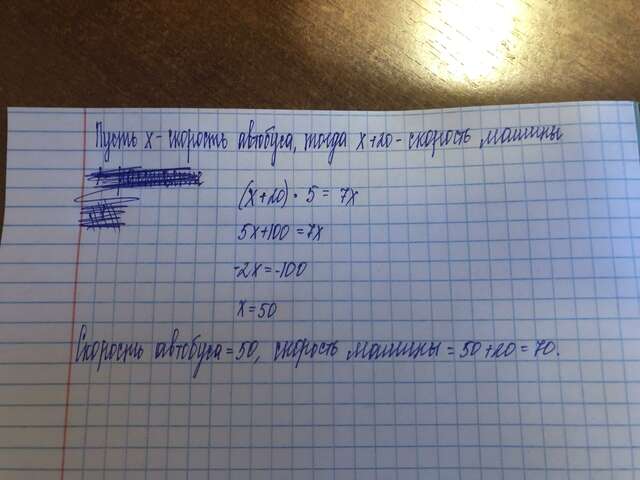 Пусть x - скорость автобуса, тогда x+20 - скорость машины
(x+20) · 5 = 7x
5x+100=7x
-2x=-100
x=50
Скорость автобуса = 50, скорость машины = 50+20 = 70.